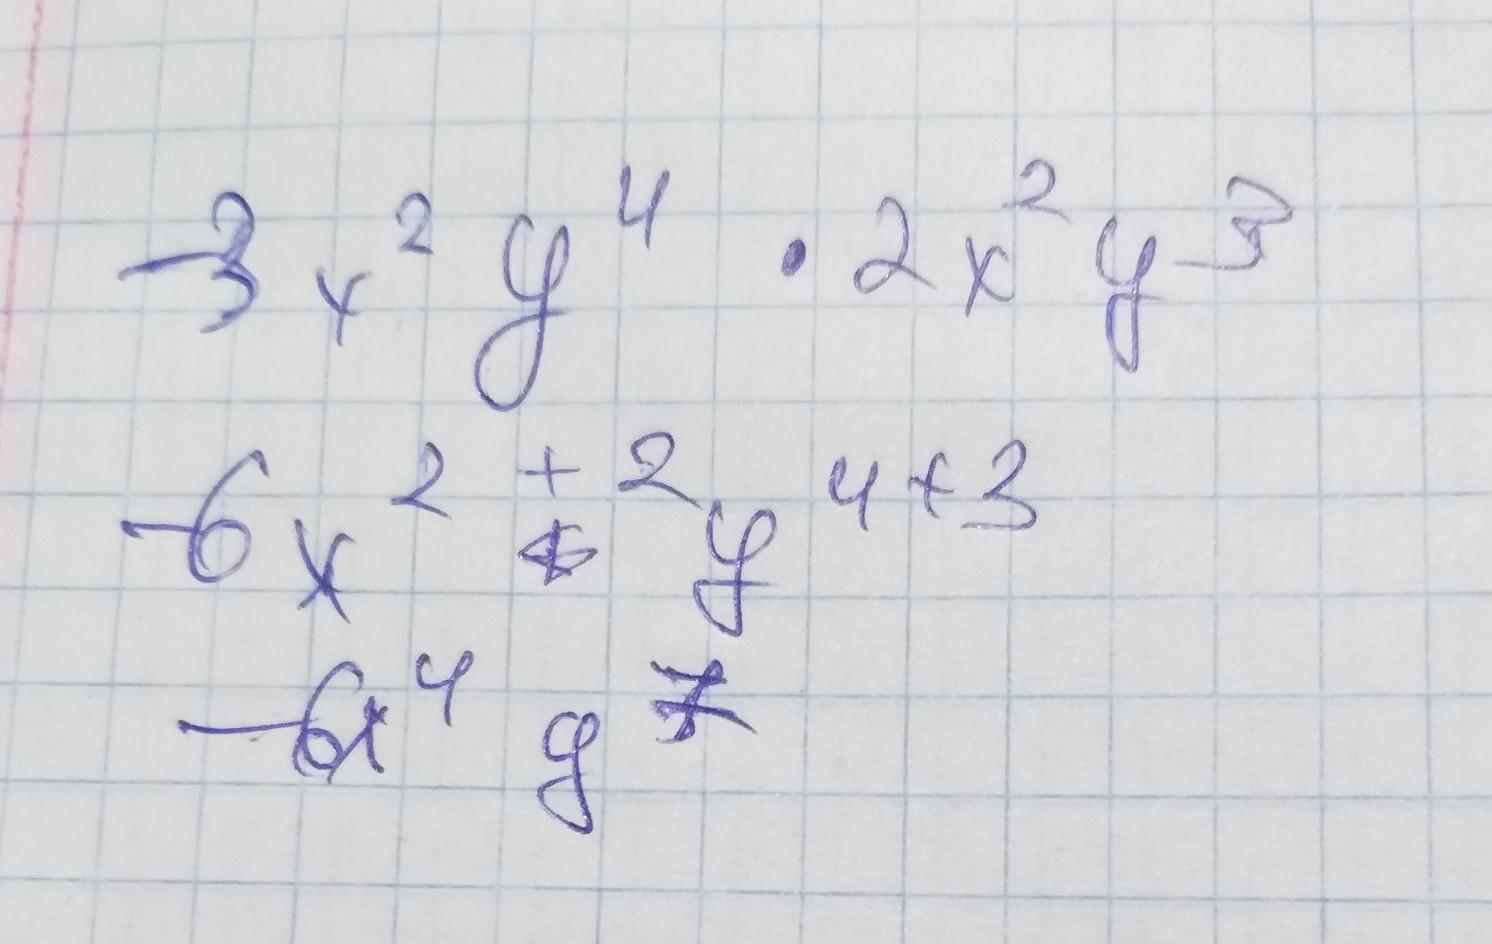 -3x² y⁴ · 2x² y³
-6x²⁺² y⁴⁺³
-6x⁴ y⁷